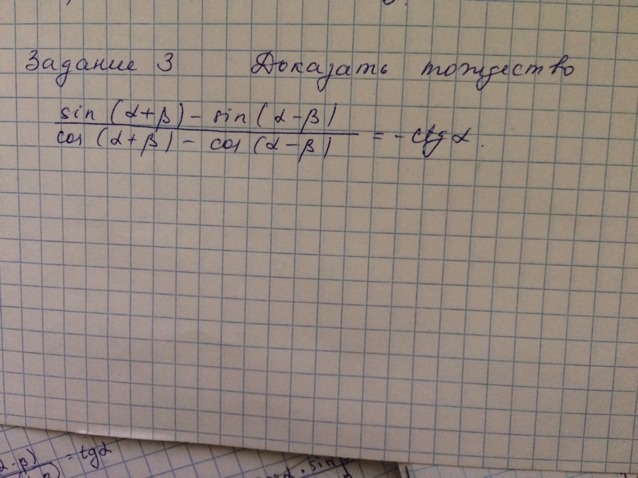 Задание 3 Доказать тождество
sin (α+β) - sin (α-β)
cos (α+β) - cos (α-β) = -ctg α.
= tgα